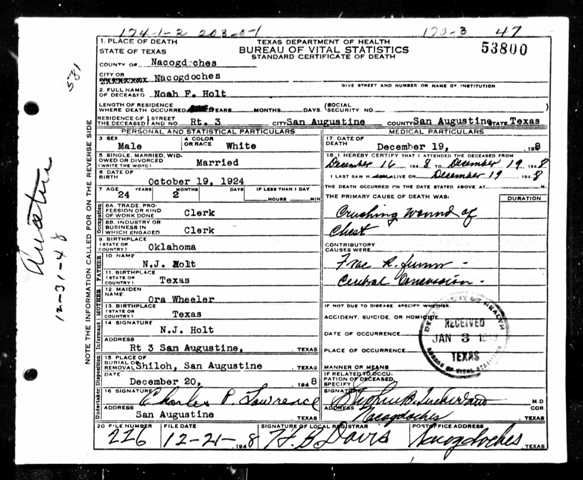 174-1-2 203-
170-3 47
1 PLACE OF DEATH
STATE OF TEXAS
TEXAS DEPARTMENT OF HEALTH
BUREAU OF VITAL STATISTICS
STANDARD CERTIFICATE OF DEATH
53800
COUNTY OF Nacogdoches
CITY OR
Nacogdoches
GIVE STREET AND NUMBER OR NAME OF INSTITUTION
2. FULL NAME
OF DECEASED Noah F. Holt
LENGTH OF RESIDENCE
WHERE DEATH OCCURRED YEARS MONTHS DAYS (SOCIAL
SECURITY NO.
RESIDENCE OF (STREET
THE DECEASED) AND NO Rt. 3 CITY San Augustine COUNTY San Augustine STATE Texas
PERSONAL AND STATISTICAL PARTICULARS
3 SEX Male
4 COLOR
OR RACE White
5 SINGLE, MARRIED, WID-
OWED OR DIVORCED
(WRITE THE WORD) Married
6 DATE OF
BIRTH October 19, 1924
7 AGE YEARS 24 MONTHS 2 DAYS IF LESS THAN 1 DAY
HOURS MIN
8A TRADE, PRO-
FESSION OR KIND
OF WORK DONE Clerk
8B. INDUSTRY OR
BUSINESS IN
WHICH ENGAGED Clerk
9 BIRTHPLACE
(STATE OR
COUNTRY) Oklahoma
10 NAME N.J. Holt
11 BIRTHPLACE
(STATE OR
COUNTRY) Texas
12 MAIDEN
NAME Ora Wheeler
13 BIRTHPLACE
(STATE OR
COUNTRY) Texas
14 SIGNATURE N.J. Holt
ADDRESS Rt 3 San Augustine, TEXAS
15 PLACE OF
BURIAL OR
REMOVAL Shiloh, San Augustine TEXAS
DATE December 20, 1948
16 SIGNATURE Charles P. Lawrence
ADDRESS San Augustine TEXAS
MEDICAL PARTICULARS
17 DATE OF
DEATH December 19, 1948
18 I HEREBY CERTIFY THAT I ATTENDED THE DECEASED FROM
December 16 1948 TO December 19 1948
I LAST SAW ALIVE ON December 19 1948
THE DEATH OCCURRED ON THE DATE STATED ABOVE AT M.
THE PRIMARY CAUSE OF DEATH WAS: DURATION
Crushing wound of
Chest
CONTRIBUTORY
CAUSES WERE:
Frac R. femur -
Cerebral Concussion -
IF NOT DUE TO DISEASE, SPECIFY WHETHER
ACCIDENT, SUICIDE, OR HOMICIDE
DATE OF OCCURRENCE
PLACE OF OCCURRENCE
MANNER OR MEANS
IF RELATED TO OCCU-
PATION OF DECEASED
SPECIFY
RECEIVED
JAN 3
TEXAS
BUREAU OF VITAL STATISTICS
SIGNATURE M D
ADDRESS Nacogdoches TEXAS
20 FILE NUMBER 226
FILE DATE 12-21-1948
SIGNATURE OF LOCAL REGISTRAR H B Davis
POSTOFFICE ADDRESS Nacogdoches TEXAS
NOTE THE INFORMATION CALLED FOR ON THE REVERSE SIDE
581
12-31-48